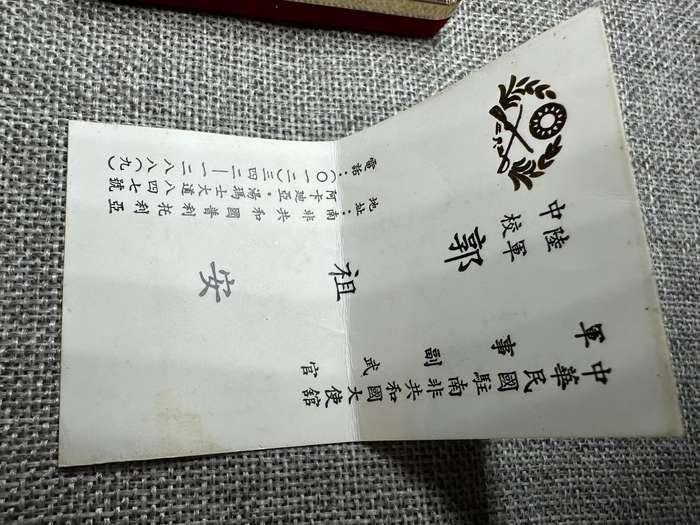 中華民國駐南非共和國大使館
軍事副武官
陸軍
中校
郭祖安
地址：南非共和國普利托利亞
阿卡迪亞・湯瑪士大道八四七號
電話：（〇一二）三四二｜一二八八（九）